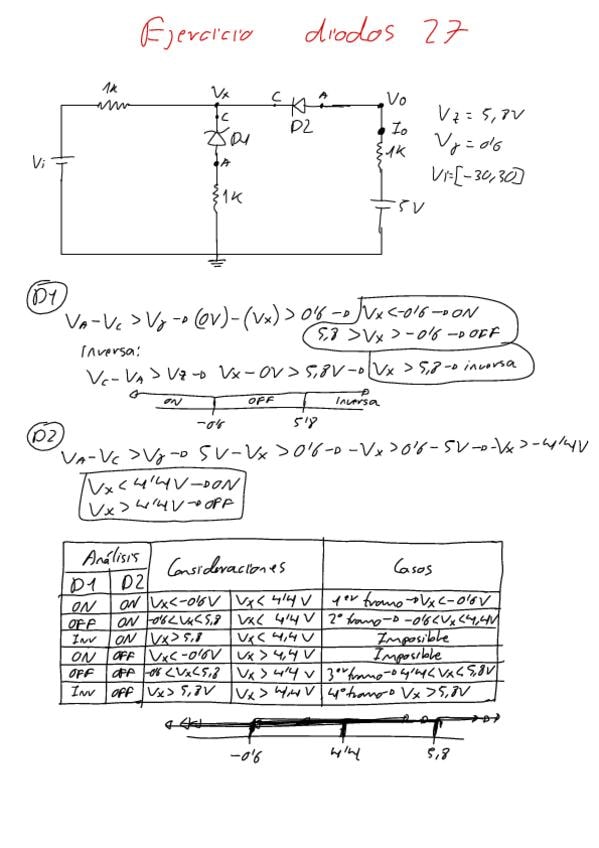 Ejercicio diodos 27
1k
Vx
C
A
Vo
Vz = 5,8V
C
D1
D2
Io
Vγ = 0'6
Vi
A
1K
Vi=[-30,30]
1K
5V
D1
VA-VC > Vγ → (0V)-(Vx) > 0'6 → Vx<-0'6 → ON
5,8 > Vx > -0'6 → OFF
Inversa:
VC-VA > VZ → Vx-0V > 5,8V → Vx > 5,8 → inversa
ON OFF Inversa
-0'6 5'8
D2
VA-VC > Vγ → 5V-Vx > 0'6 → -Vx > 0'6-5V → -Vx > -4'4V
Vx < 4'4V → ON
Vx > 4'4V → OFF
Análisis Consideraciones Casos
D1 D2
ON ON Vx<-0'6V Vx< 4'4V 1er tramo → Vx<-0'6V
OFF ON -0'6<Vx<5,8 Vx< 4'4V 2º tramo → -0'6<Vx<4,4V
Inv ON Vx>5,8 Vx< 4,4V Imposible
ON OFF Vx<-0'6V Vx > 4,4V Imposible
OFF OFF -0'6<Vx<5,8 Vx > 4'4V 3er tramo → 4'4<Vx<5,8V
Inv OFF Vx > 5,8V Vx > 4,4V 4º tramo → Vx >5,8V
-0'6 4'4 5,8